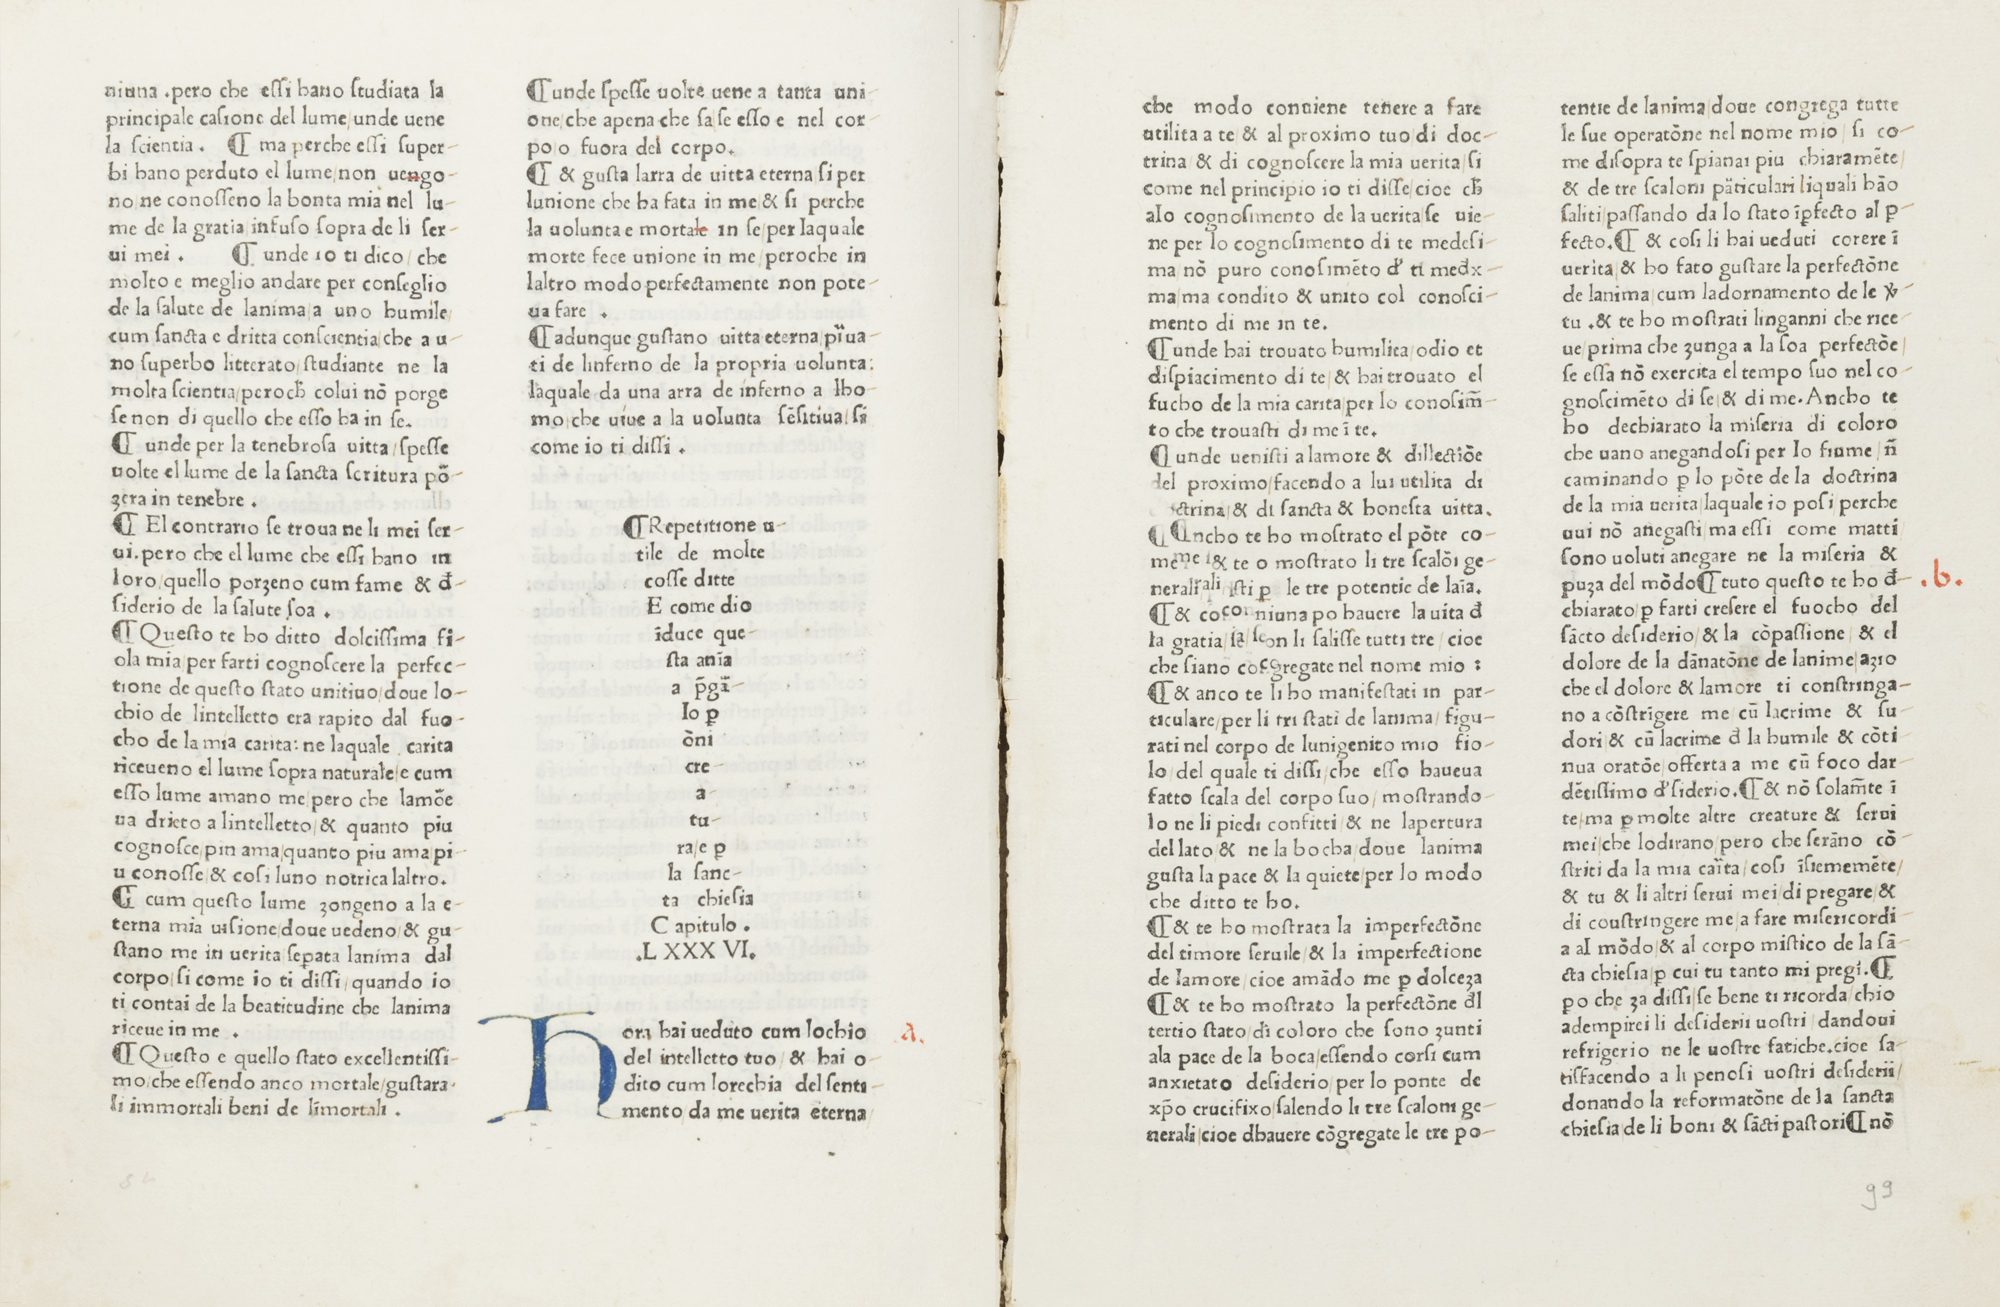 niuna .pero che essi hano studiata la
principale casione del lume/unde uene
la scientia . ¶ ma perche essi super-
bi hano perduto el lume/non uengo-
no/ne conosseno la bonta mia nel lu-
me de la gratia/infuso sopra de li ser-
ui mei . ¶ unde io ti dico/che
molto e meglio andare per conseglio
de la salute de lanima/a uno humile/
cum sancta e dritta conscientia/che a u-
no superbo litterato/studiante ne la
molta scientia/peroch̄ colui nō porge
se non di quello che esso ha in se.
¶ unde per la tenebrosa uitta/spesse
uolte el lume de la sancta scritura pō-
zera in tenebre .
¶ El contrario se troua ne li mei ser-
ui.pero che el lume che essi hano in
loro/quello porzeno cum fame & d̄-
siderio de la salute soa .
¶ Questo te ho ditto dolcissima fi-
ola mia/per farti cognoscere la perfec-
tione de questo stato unitiuo/doue lo-
chio de lintelletto era rapito dal fuo-
cho de la mia carita: ne laquale carita
riceueno el lume sopra naturale/e cum
esso lume amano me/pero che lamōe
ua drieto a lintelletto/& quanto piu
cognosce/pin ama/quanto piu ama/pi-
u conosse/& cosi luno notrica laltro.
¶ cum questo lume zongeno a la e-
terna mia uisione/doue uedeno/& gu-
stano me in uerita/sepata lanima dal
corpo/si come io ti dissi/quando io
ti contai de la beatitudine che lanima
riceue in me .
¶ Questo e quello stato excellentissi-
mo/che essendo anco mortale/gustara
li immortali beni de limortali .
¶ unde spesse uolte uene a tanta uni-
one/che apena che sa/se esso e nel cor-
po/o fuora del corpo.
¶ & gusta larra de uitta eterna/si per
lunione che ha fata in me/& si perche
la uolunta e mortale in se/per laquale
morte fece unione in me/peroche in
laltro modo perfectamente non pote-
ua fare .
¶ adunque gustano uitta eterna/pīua-
ti de linferno de la propria uolunta:
laquale da una arra de inferno a lho-
mo/che uiue a la uolunta sēsitiua/si
come io ti dissi .
¶ Repetitione u-
tile de molte
cosse ditte
E come dio
īduce que-
sta anīa
a p̄gā-
lo p̱
ōni
cre-
a-
tu-
ra/e p̱
la sanc-
ta chiesia
Capitulo .
.LXXXVI.
Hora hai ueduto cum lochio
del intelletto tuo/& hai o-
dito cum lorechia del senti-
mento/da me uerita eterna/
a.
che modo conuiene tenere a fare
utilita a te & al proximo tuo/di doc-
trina & di cognoscere la mia uerita/si
come nel principio io ti disse/cioe ch̄
alo cognosimento de la uerita/se uie-
ne per lo cognosimento di te medesi-
ma/nō puro conosimēto d' ti medx-
ma/ma condito & unito col conosci-
mento di me in te.
¶ unde hai trouato humilita/odio et
dispiacimento di te/& hai trouato el
fucho de la mia carita/per lo conosim̄-
to che trouasti di me ī te.
¶ unde uenisti a lamore & dillectiōe
del proximo/facendo a lui utilita di
ctrina/& di sancta & honesta uitta.
¶ Ancho te ho mostrato el pōte co-
me & te o mostrato li tre scalōi ge-
nerali sti p̱ le tre potentie de laīa.
¶ & co niuna po hauere la uita d̄
la gratia/ on li salisse tutti tre/cioe
che siano cogregate nel nome mio :
¶ & anco te li ho manifestati in par-
ticulare/per li tri stati de lanima/figu-
rati nel corpo de lunigenito mio fio-
lo/del quale ti dissi/che esso haueua
fatto scala del corpo suo/mostrando-
lo ne li piedi confitti/& ne lapertura
del lato/& ne la bocha/doue lanima
gusta la pace & la quiete/per lo modo
che ditto te ho.
¶ & te ho mostrata la imperfectōne
del timore seruile/& la imperfectione
de lamore/cioe amādo me p̱ dolceza
¶ & te ho mostrato la perfectōne d̄l
tertio stato/di coloro che sono zunti
ala pace de la boca/essendo corsi cum
anxietato desiderio/per lo ponte de
xp̄o crucifixo/salendo li tre scaloni ge-
nerali/cioe dhauere cōgregate le tre po-
tentie de lanima/doue congrega tutte
le sue operatōne nel nome mio/si co-
me disopra te spianai piu chiaramēte/
& de tre scaloni pāticulari liquali hāo
saliti/passando da lo stato īp̱fecto al p̱-
fecto.¶ & cosi li hai ueduti corere ī
uerita/& ho fato gustare la perfectōne
de lanima/cum ladornamento de le v̄-
tu .& te ho mostrati linganni che rice-
ue/prima che zunga a la soa perfectōe/
se essa nō exercita el tempo suo nel co-
gnoscimēto di se/& di me.Ancho te
ho dechiarato la miseria di coloro
che uano anegandosi per lo fiume/n̄
caminando p̱ lo pōte de la doctrina
de la mia uerita/laquale io posi/perche
uui nō anegasti/ma essi come matti
sono uoluti anegare ne la miseria &
puza del mōdo¶ tuto questo te ho d̄-
chiarato/p̱ farti cresere el fuocho del
sācto desiderio/& la cōpassione/& el
dolore de la dānatōne de lanime/azio
che el dolore & lamore ti constringa-
no a cōstrīgere me/cū lacrime & su-
dori/& cū lacrime d̄ la humile & cōti-
nua oratōe/offerta a me cū foco dar-
dētissimo d'siderio.¶ & nō solam̄te ī
te/ma p̱ molte altre creature & serui
mei/che lodirano/pero che serāno cō-
striti da la mia caīta/cosi īsiememēte/
& tu & li altri serui mei/di pregare/&
di coustringere me/a fare misericordi-
a al mōdo/& al corpo mistico de la sā-
cta chiesia/p̱ cui tu tanto mi pregi.¶
p̱o che za dissi/se bene ti ricorda/chio
adempirei li desiderii uostri/dandoui
refrigerio ne le uostre fatiche.cioe sa-
tisfacendo a li penosi uostri desiderii/
donando la reformatōne de la sancta
chiesia/de li boni & sācti pastori¶ nō
.b.
99